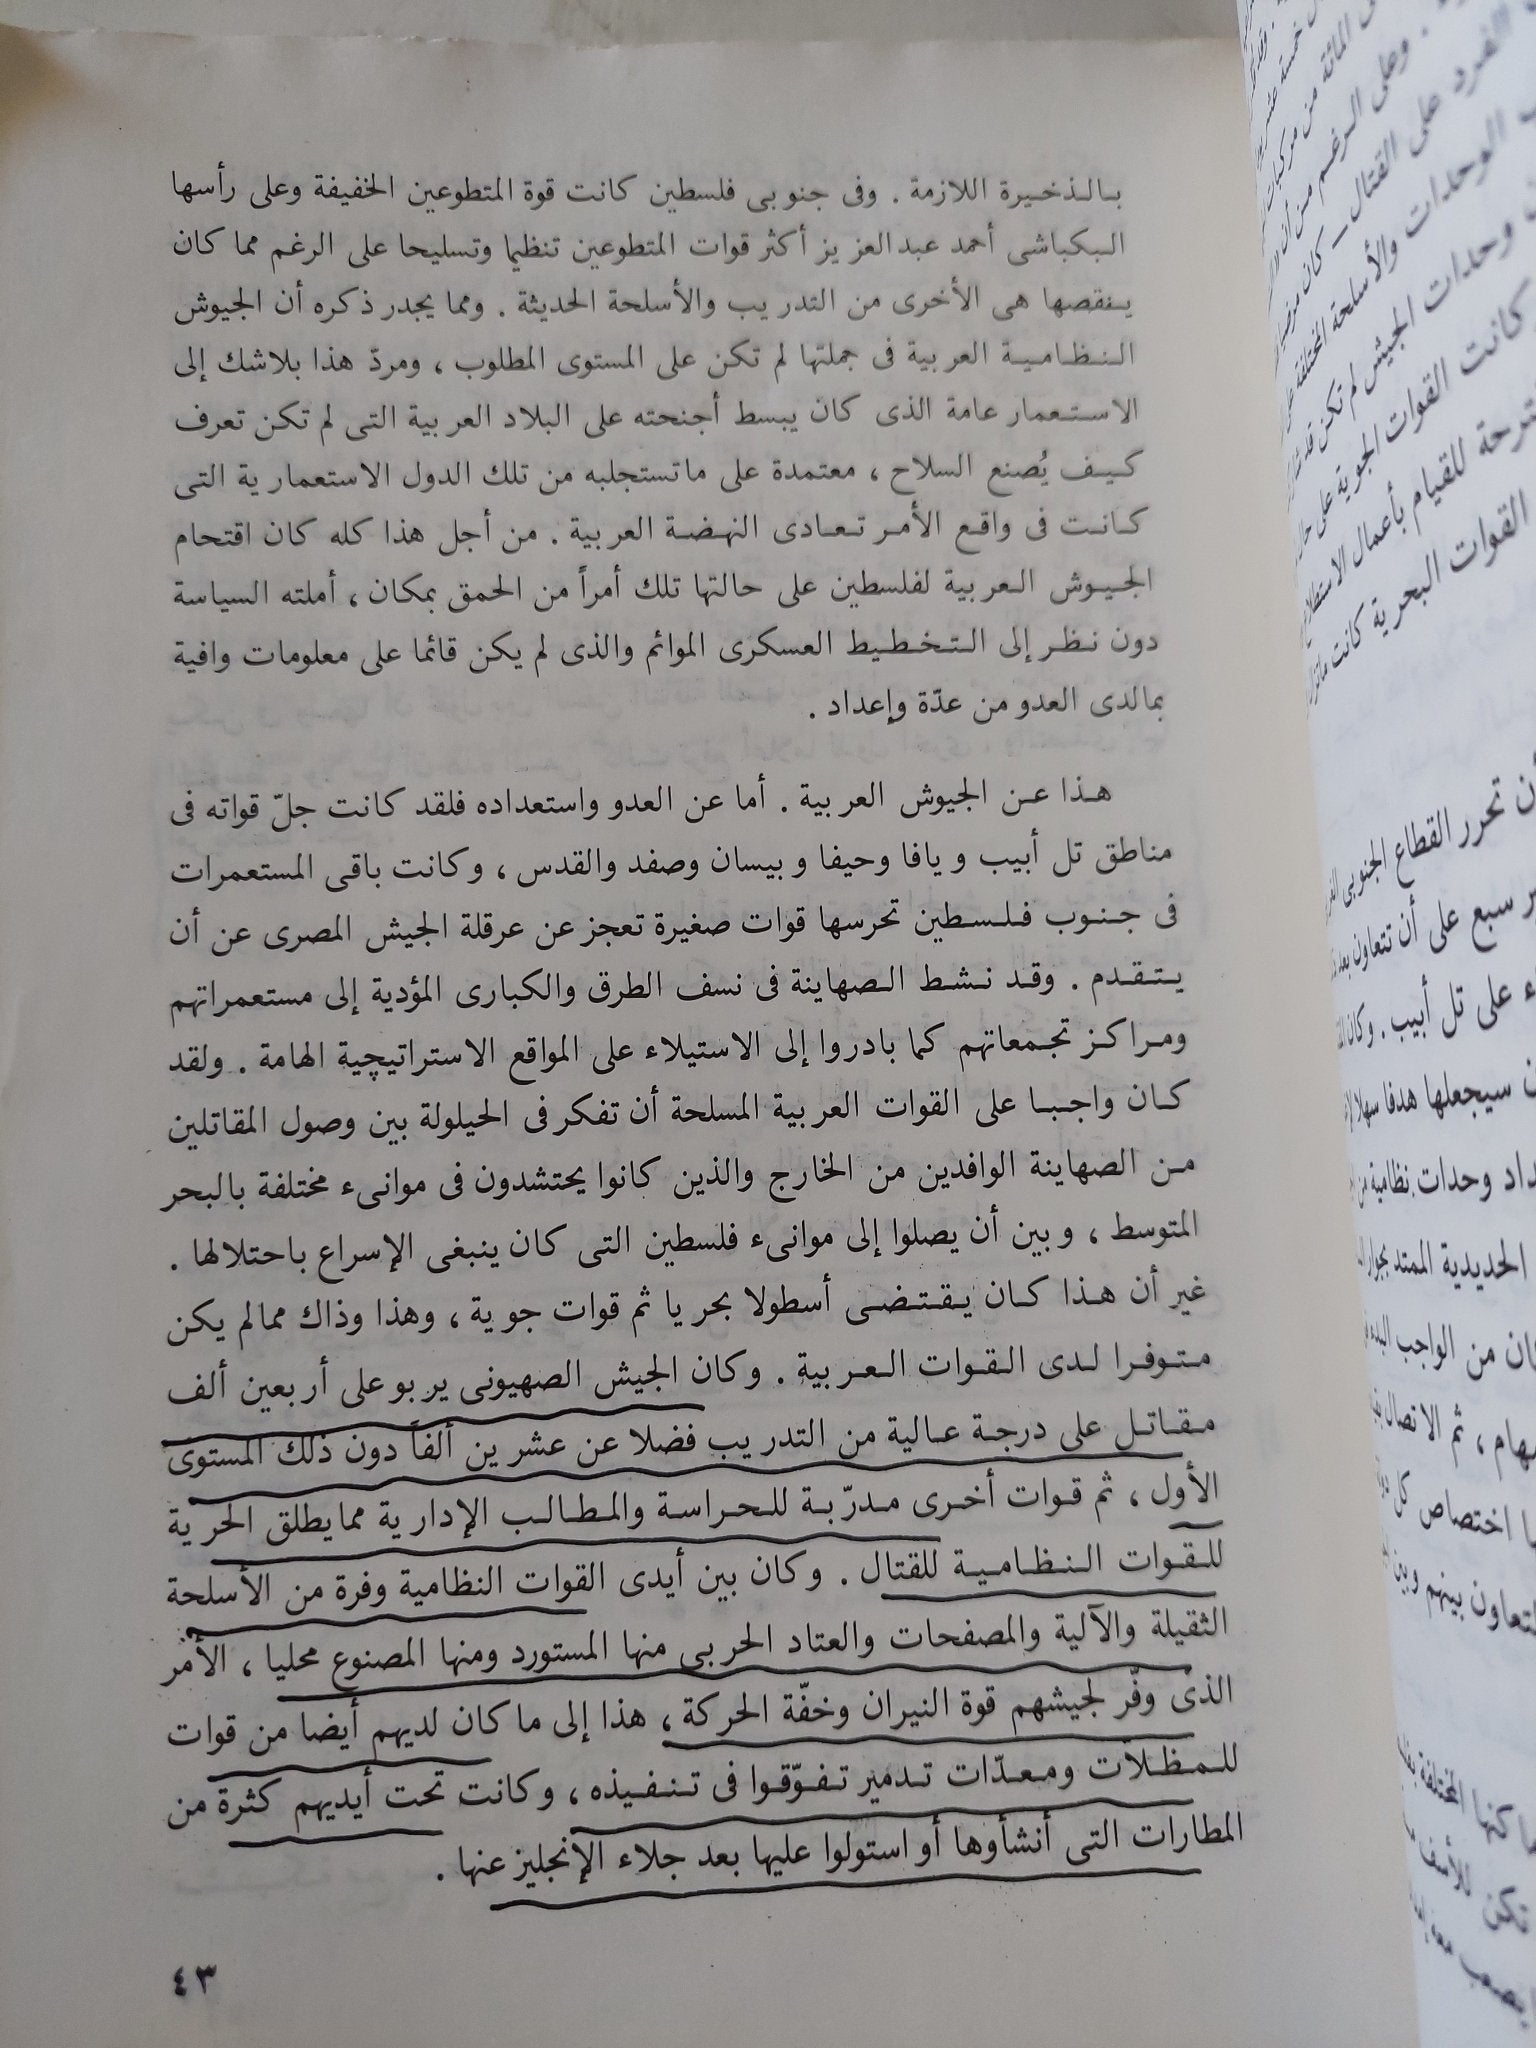 بالذخيرة اللازمة . وفى جنوبى فلسطين كانت قوة المتطوعين الخفيفة وعلى رأسها
البكباشى أحمد عبدالعزيز أكثر قوات المتطوعين تنظيما وتسليحا على الرغم مما كان
ينقصها هى الأخرى من التدريب والأسلحة الحديثة . ومما يجدر ذكره أن الجيوش
النظامية العربية فى جملتها لم تكن على المستوى المطلوب ، ومردّ هذا بلاشك إلى
الاستعمار عامة الذى كان يبسط أجنحته على البلاد العربية التى لم تكن تعرف
كيف يُصنع السلاح ، معتمدة على ماتستجلبه من تلك الدول الاستعمارية التى
كانت فى واقع الأمر تعادى النهضة العربية . من أجل هذا كله كان اقتحام
الجيوش العربية لفلسطين على حالتها تلك أمراً من الحمق بمكان ، أملته السياسة
دون نظر إلى التخطيط العسكرى الموائم والذى لم يكن قائما على معلومات وافية
بمالدى العدو من عدّة وإعداد .
هذا عن الجيوش العربية . أما عن العدو واستعداده فلقد كانت جلّ قواته فى
مناطق تل أبيب و يافا وحيفا و بيسان وصفد والقدس ، وكانت باقى المستعمرات
فى جنوب فلسطين تحرسها قوات صغيرة تعجز عن عرقلة الجيش المصرى عن أن
يتقدم . وقد نشط الصهاينة فى نسف الطرق والكبارى المؤدية إلى مستعمراتهم
ومراكز تجمعاتهم كما بادروا إلى الاستيلاء على المواقع الاستراتيچية الهامة . ولقد
كان واجبا على القوات العربية المسلحة أن تفكر فى الحيلولة بين وصول المقاتلين
من الصهاينة الوافدين من الخارج والذين كانوا يحتشدون فى موانىء مختلفة بالبحر
المتوسط ، و بين أن يصلوا إلى موانىء فلسطين التى كان ينبغى الإسراع باحتلالها .
غير أن هذا كان يقتضى أسطولا بحريا ثم قوات جوية ، وهذا وذاك ممالم يكن
متوفرا لدى القوات العربية . وكان الجيش الصهيونى يربو على أربعين ألف
مقاتل على درجة عالية من التدريب فضلا عن عشرين ألفاً دون ذلك المستوى
الأول ، ثم قوات أخرى مدرّبة للحراسة والمطالب الإدارية مما يطلق الحرية
للقوات النظامية للقتال . وكان بين أيدى القوات النظامية وفرة من الأسلحة
الثقيلة والآلية والمصفحات والعتاد الحربى منها المستورد ومنها المصنوع محليا ، الأمر
الذى وفّر لجيشهم قوة النيران وخفّة الحركة ، هذا إلى ما كان لديهم أيضا من قوات
للمظلات ومعدّات تدمير تفوّقوا فى تنفيذه ، وكانت تحت أيديهم كثرة من
المطارات التى أنشأوها أو استولوا عليها بعد جلاء الإنجليز عنها .
٤٣
وعلى الرغم من أن
على القتال – كان
الوحدات والأسلحة المختلفة
وحدات الجيش لم تكن قد
كانت القوات الجوية على
للقيام بأعمال الاستطلاع
القوات البحرية كانت
تحرر القطاع الجنوبى
سبع على أن تتعاون بعد
على تل أبيب . وكان
سيجعلها هدفا سهلا
وحدات نظامية من
الحديدية الممتد بجوار
من الواجب البدء
ثم الاتصال
اختصاص كل
بينهم وبين
المختلفة
تكن للأسف